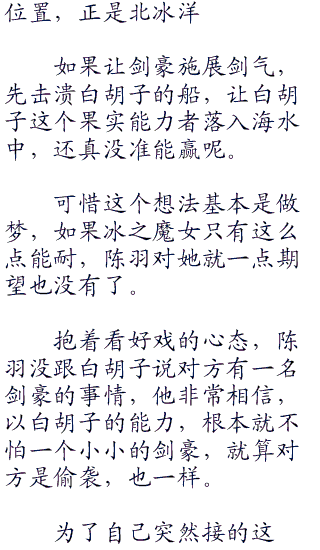 位置，正是北冰洋
如果让剑豪施展剑气，
先击溃白胡子的船，让白胡
子这个果实能力者落入海水
中，还真没准能赢呢。
可惜这个想法基本是做
梦，如果冰之魔女只有这么
点能耐，陈羽对她就一点期
望也没有了。
抱着看好戏的心态，陈
羽没跟白胡子说对方有一名
剑豪的事情，他非常相信，
以白胡子的能力，根本就不
怕一个小小的剑豪，就算对
方是偷袭，也一样。
为了自己突然接的这